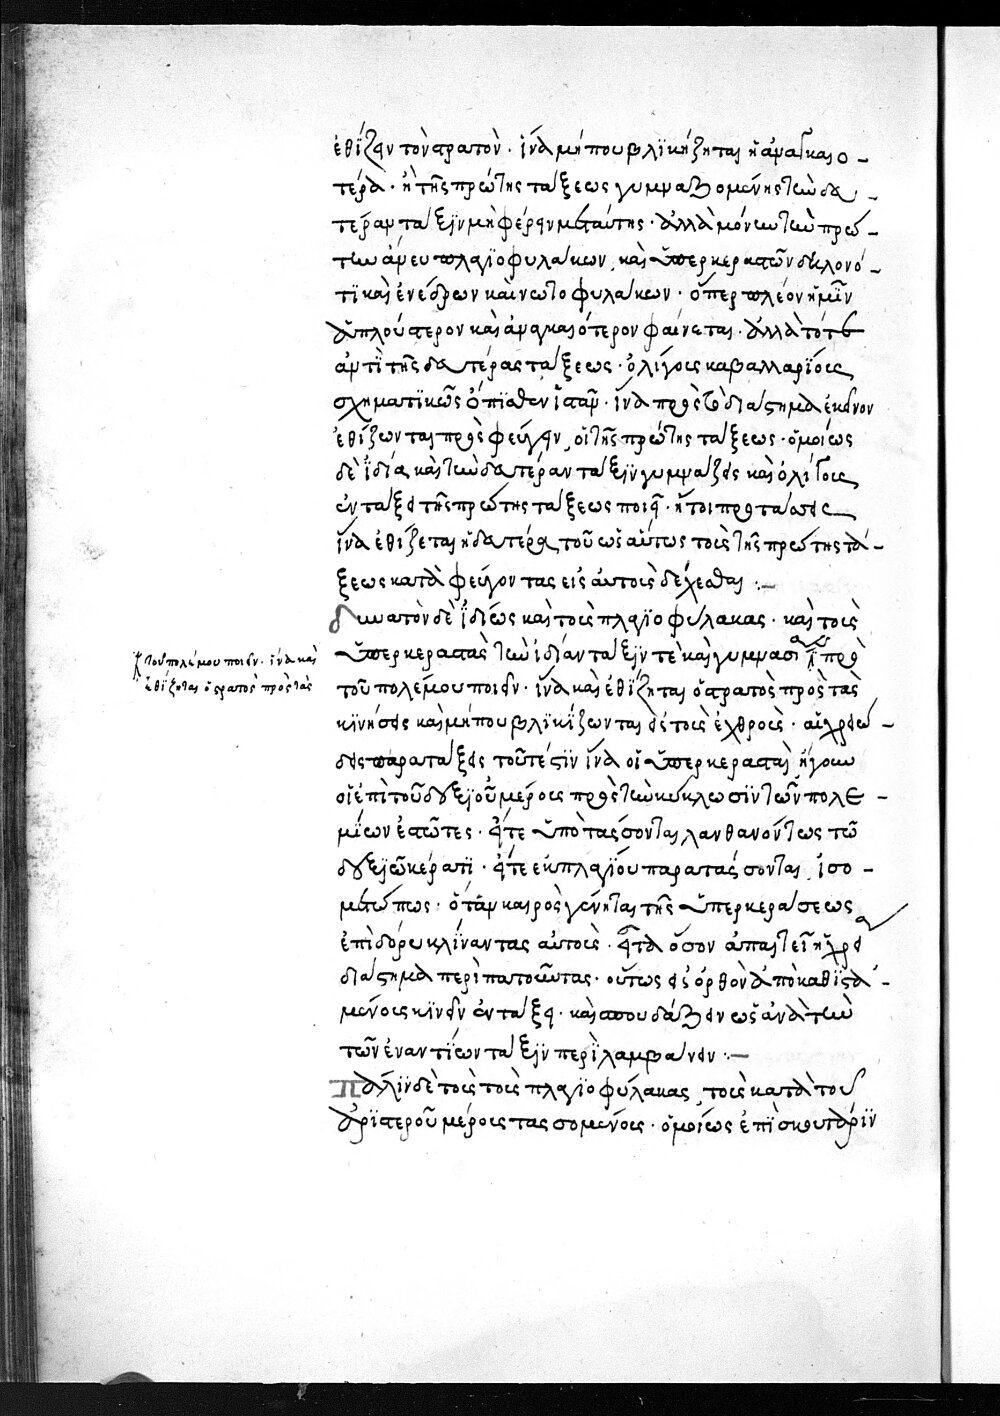 ἐθίζειν τὸν στρατὸν· ἵνα μήπου βλϊκήζηται ἡ ἀναγκαιο -
τέρα· ἢ τῆς πρώτης τάξεως γυμναζομένης τὴν δευ -
τέραν τάξϊν μὴ φέρειν μετ' αὐτῆς· ἀλλὰ μόνην τὴν πρώ -
την ἄνευ πλαγϊοφυλάκων, καὶ ὑπερκεραστῶν δηλονό -
τϊ καὶ ἐνέδρων καὶ νωτοφυλάκων· ὅπερ πλέον ἡμῖν
ἁπλούστερον καὶ ἀναγκαιότερον φαίνεται· ἀλλὰ τότε
ἀντὶ τῆς δευτέρας τάξεως· ὀλίγους καβαλλαρΐους
σχηματϊκῶς ὄπϊσθεν ἱστᾶν· ἵνα πρὸς τὸ διάστημα ἐκεῖνον
ἐθίζωνται προσφεύγειν, οἱ τῆς πρώτης τάξεως· ὁμοίως
δὲ ἰδία καὶ τὴν δευτέραν τάξϊν γυμνάζεις καὶ ὀλίγους
ἐν τάξει τῆς πρώτης τάξεως ποιεῖ· ἤτοι προτάσσεις
ἵνα ἐθίζεται ἡ δευτέρα τοῦ ὡσαύτως τοὺς τῆς πρώτης τά -
ξεως καταφεύγοντας εἰς αὐτοὺς δέχεσθαι :-
δυνατὸν δὲ ἰδίως καὶ τοὺς πλαγϊοφύλακας· καὶ τοὺς
ὑπερκεραστὰς τὴν ἰδίαν τάξϊν τὲ καὶ γυμνασίαν πρὸ
τοῦ πολέμου ποιεῖν· ἵνα καὶ ἐθίζηται ὁ στρατὸς πρὸς τὰς
τοῦ πολέμου ποιεῖν· ἵνα καὶ
ἐθίζηται ὁ στρατὸς πρὸς τὰς
κϊνήσεις καὶ μήπου βλϊκίζωνται εἰς τοὺς ἐχθροὺς· αἱ χρειώ -
δεις παρατάξεις τοῦτέστϊν ἵνα οἱ ὑπερκερασταὶ ἤγουν
οἱ ἐπὶ τοῦ δεξϊοῦ μέρους πρὸς τὴν κύκλωσϊν τῶν πολε -
μίων ἑστῶτες· εἴτε ὑποτάσσονται λανθανόντως τῶ
δεξϊῶ κέρατϊ· εἴτε ἐκ πλαγϊου παρατάσσονται ἰσο -
μετώπως· ὅταν καιρὸς γένηται τῆς ὑπερκεράσεως
ἐπὶ δόρυ κλϊναντας αὐτοὺς· εἶτα ὅσον ἀπαιτεῖ ἡ χρεία
διάστημα περϊπατοῦντας· οὕτως εἰς ὀρθὸν ἀποκαθϊστα -
μένους κϊνεῖν ἐν τάξει· καὶ σπουδάζειν ὡσανὰ τὴν
τῶν ἐναντϊων τάξϊν περϊλαμβάνειν :-
Πάλϊν δὲ τοὺς τοὺς πλαγϊοφύλακας, τοὺς κατὰ τοῦ
ἀρϊστεροῦ μέρους τασσομένους· ὁμοίως ἐπὶ σκουτάρϊν